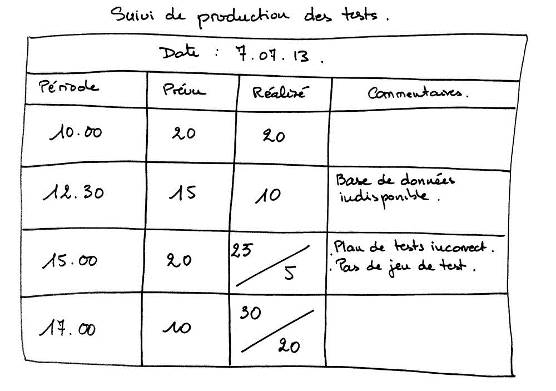 Suivi de production des tests.
Date : 7.07.13.
Période Prévu Réalisé Commentaires.
10.00 20 20
12.30 15 10 Base de données
indisponible.
15.00 20 25/5 . Plan de tests incorrect.
. Pas de jeu de test.
17.00 10 30/20